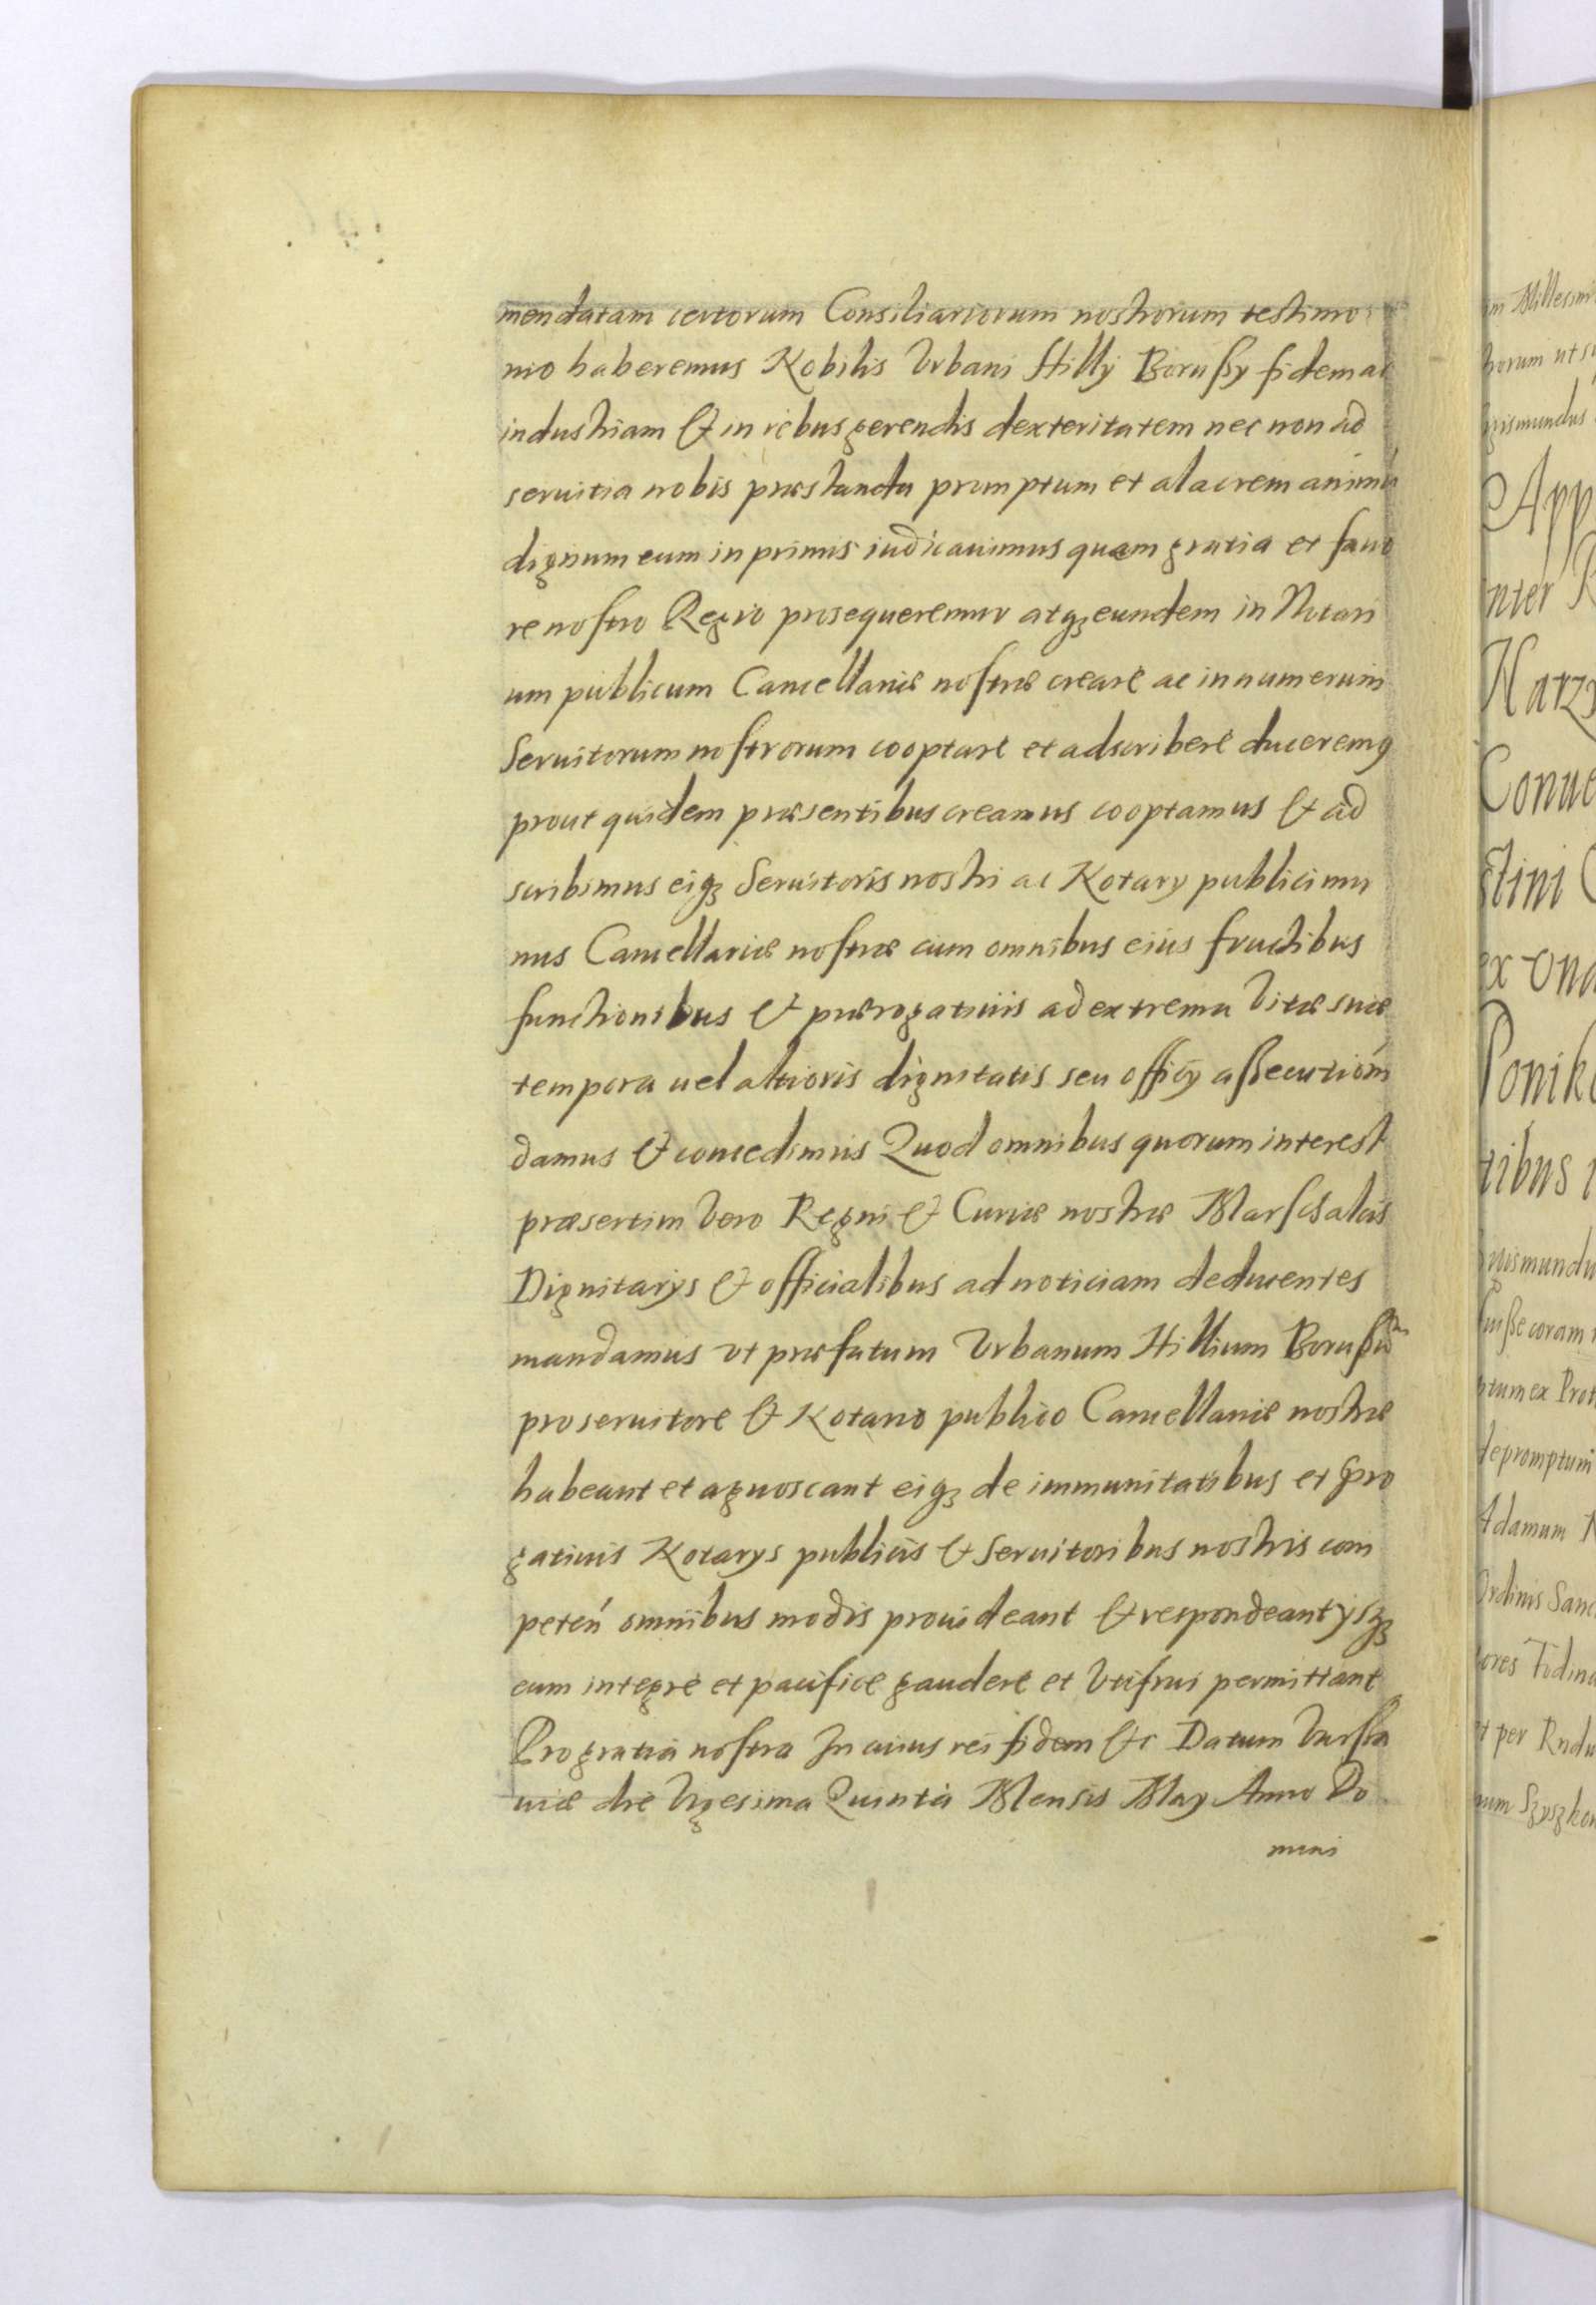 mendatam certorum Consiliariorum nostrorum testimo
nio haberemus Nobilis Vrbani Hilly Borussy fidem ac
industriam & in rebus gerendis dexteritatem nec non ad
seruitia nobis præstanda promptum et alacrem animū
dignum eum in primis iudicauimus quem gratia et fauo
re nostro Regio prosequeremur atqȝ eundem in Notari
um publicum Cancellariæ nostræ creare ac in numerum
Seruitorum nostrorum cooptare et adscribere duceremꝯ
prout quidem præsentibus creamus cooptamus & ad
scribimus eiqȝ Seruitoris nostri ac Notary publici mu
nus Cancellariæ nostræ cum omnibus eius fructibus
functionibus & prærogatiuiis ad extrema Vitæ suæ
tempora uel altioris dignitatis seu officy assecutiom
damus & concedimus Quod omnibus quorum interest
præsertim Vero Regni & Curiæ nostræ Marschalcis
Dignitarys & officialibus ad noticiam deducentes
mandamus vt præfatum Vrbanum Hillium Borussū
pro seruitore & Notario publico Cancellariæ nostræ
habeant et agnoscant eiqȝ de immunitatibus et ꝓro
gatiuis Notarys publicis & Seruitoribus nostris com
peteń omnibus modis prouideant & respondeant ysqȝ
eum integre et pacifice gaudere et Vtifrui permittant
Pro gratia nostra In cuius rei fidem &c Datum Varssa
uiæ die Vigesima Quinta Mensis May Anno Do
mini
im Millesimi
horum ut s
gismundus
App
nter R
Narzy
Conue
stini C
ex Vna
Ponik
tibus
gismundu
fuisse coram
ptum ex Prot
depromptum
Adamum
Ordinis Sanc
ores Fidina
t per Rndu
num Szyszkow